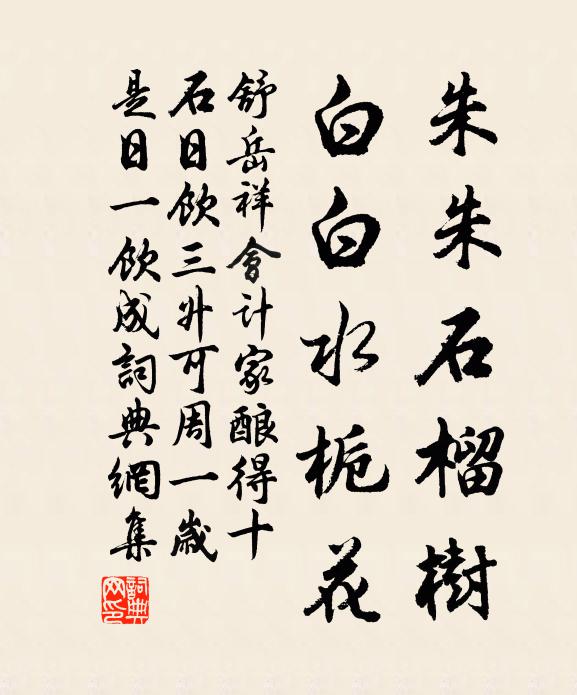 朱朱石榴樹
白白水栀花
舒岳祥會計家釀得十
石日飲三升可周一歲
是日一飲成詞典網集
詞典网印